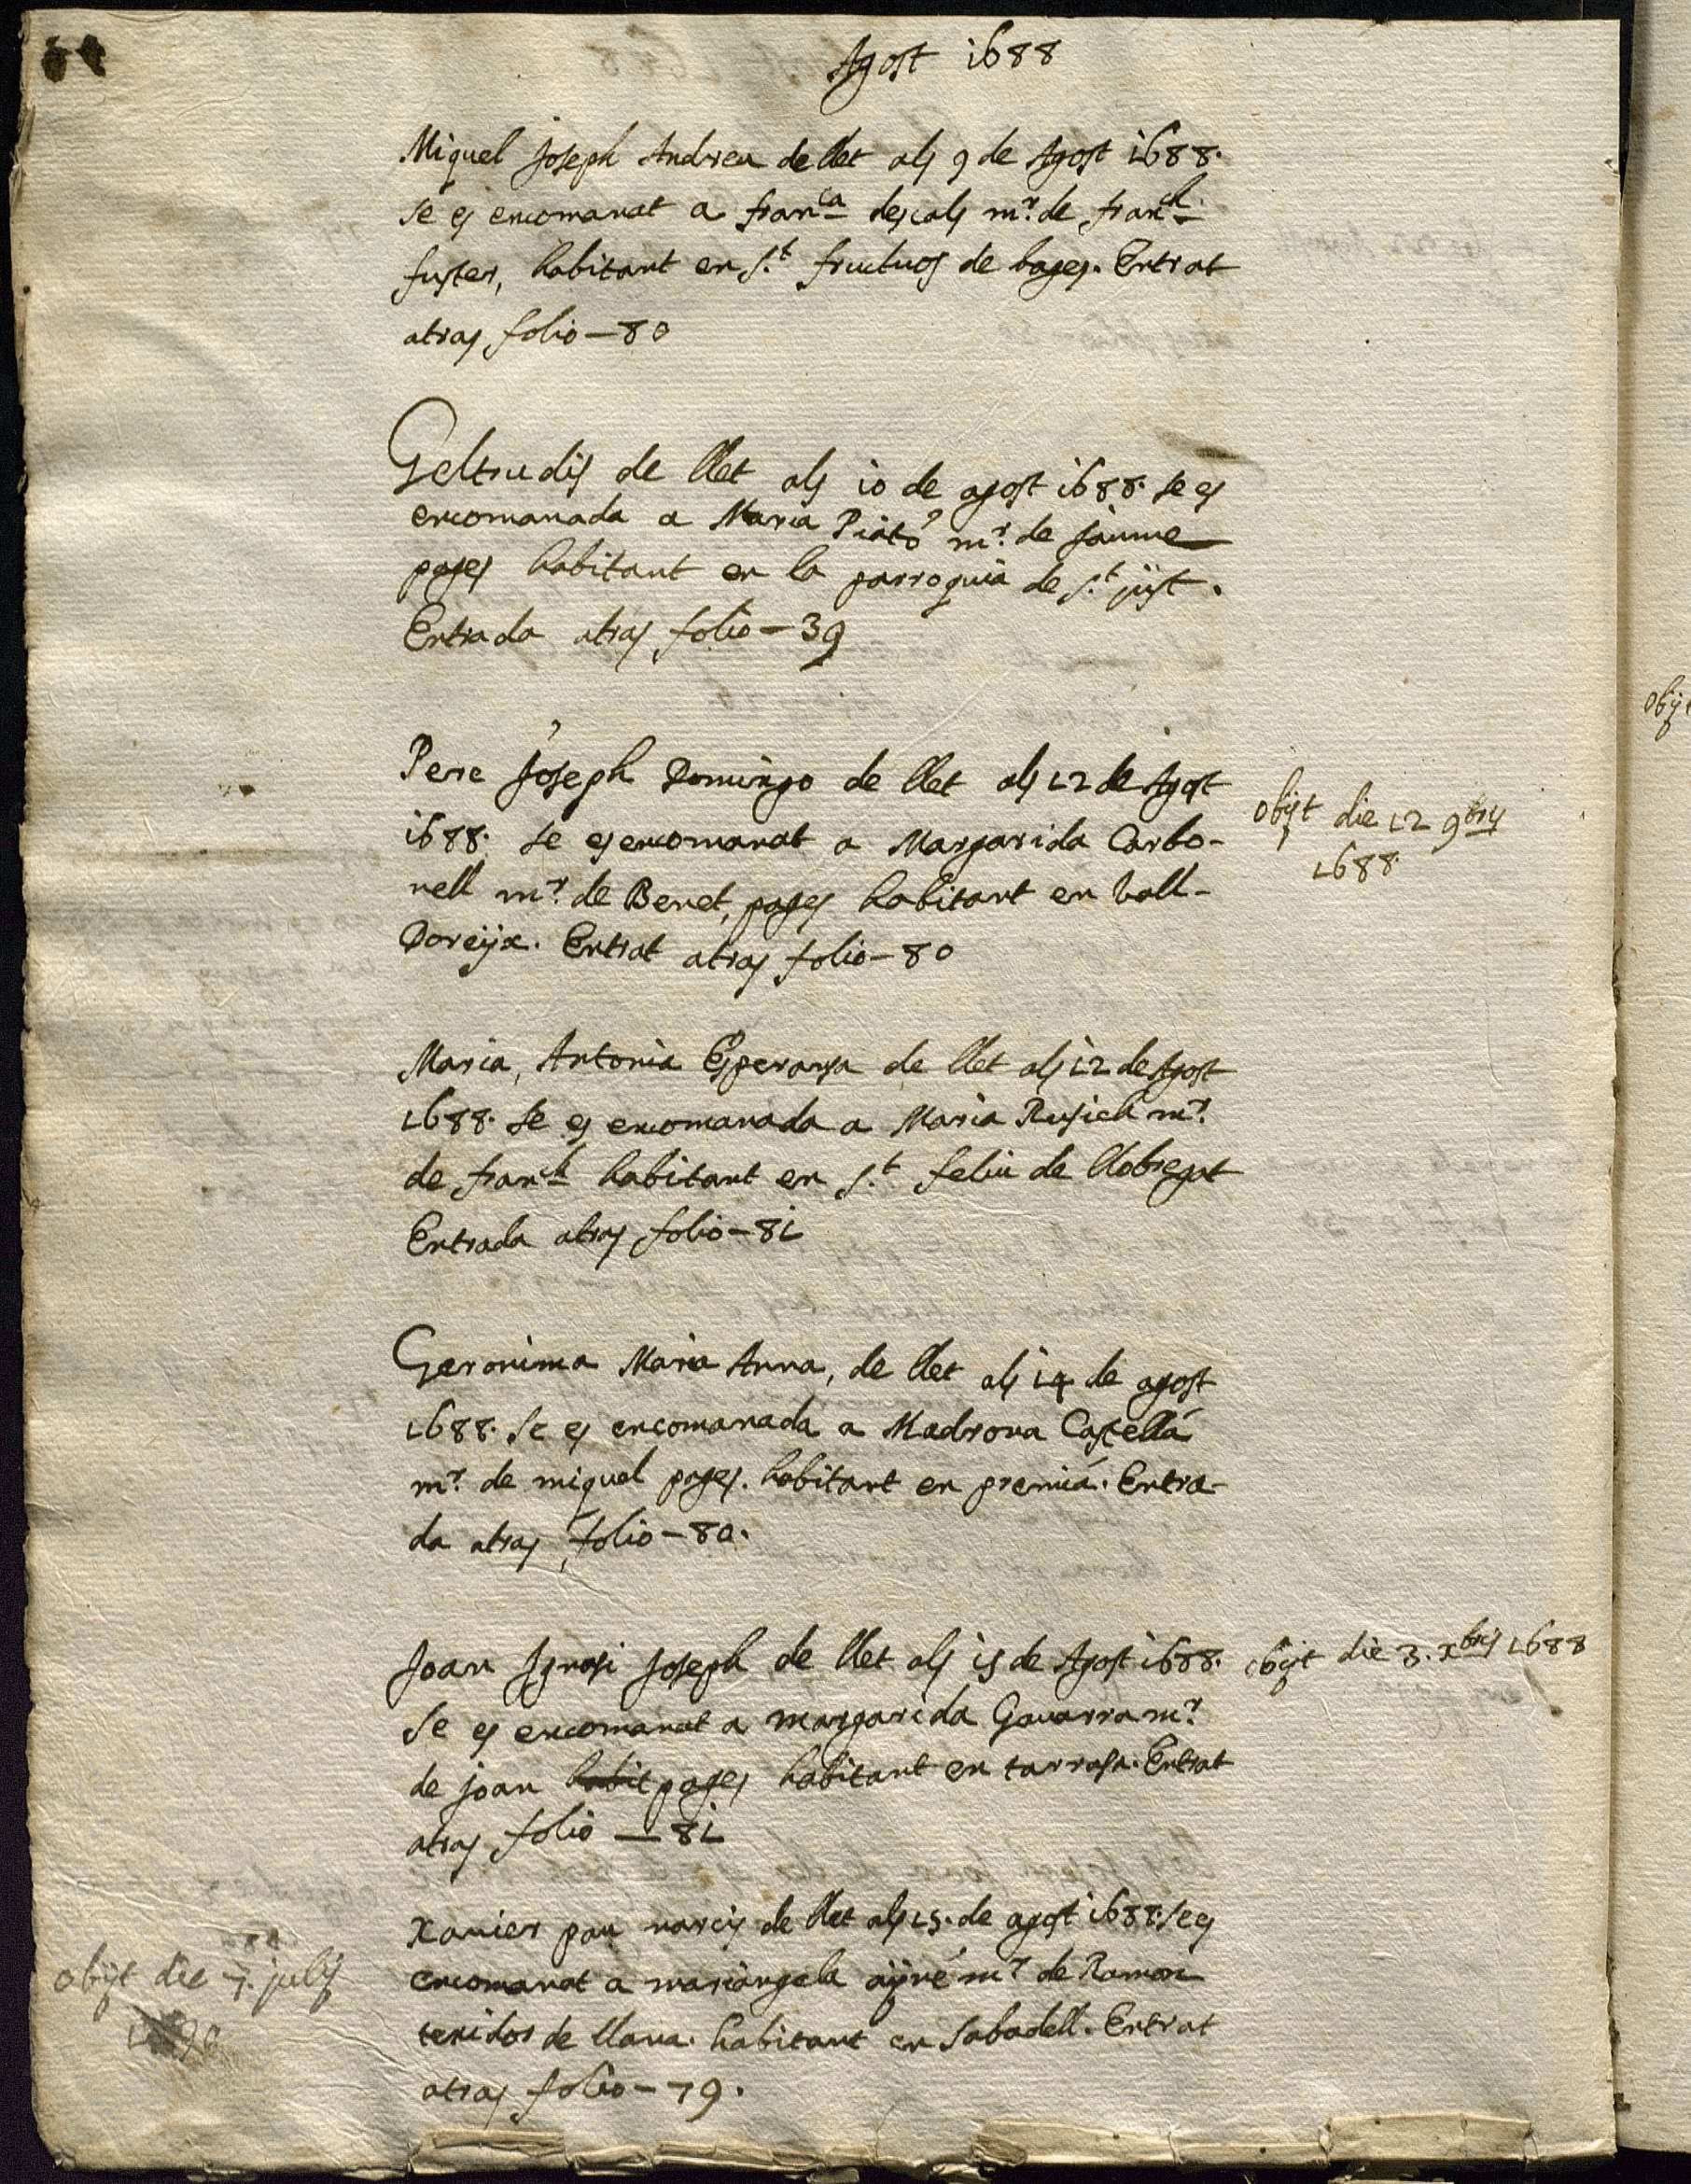 Agost 1688
Miquel Joseph Andreu de llet als 9 de Agost 1688.
se es encomanat a fran.ca descals m.r de fran.ch
fuster, habitant en S.t fructuos de bages. Entrat
atras folio - 80
Geltrudis de llet als 10 de agost 1688. se es
encomanada a Maria Piató m.r de Jaume
pages habitant en la parroquia de S.t just.
Entrada atras folio - 39
Pere Joseph Domingo de llet als 12 de Agost
1688. se es encomanat a Margarida Carbo-
nell m.r de Benet, pages habitant en Vall-
Doreijx. Entrat atras folio - 80
obijt die 12 9bris
1688
Maria, Antonia Esperansa de llet als 12 de Agost
1688. se es encomanada a Maria Rusich m.r
de fran.ch habitant en S.t feliu de llobregat
Entrada atras folio - 81
Geronima Maria Anna, de llet als 14 de agost
1688. Se es encomanada a Madrona Castellá
m.r de miquel pages. habitant en premiá. Entra-
da atras folio - 80.
Joan Ignasi Joseph de llet als 15 de Agost 1688.
Se es encomanat a margarida Gavarra m.r
de joan habit pages habitant en tarrasa. Entrat
atras folio - 81
obijt die 3. xbris 1688
Xavier pau narcis de llet als 15. de agost 1688. se es
encomanat a mariangela aijné m.r de Ramon
texidor de llana. habitant en Sabadell. Entrat
atras folio - 79.
obijt die 7. julij